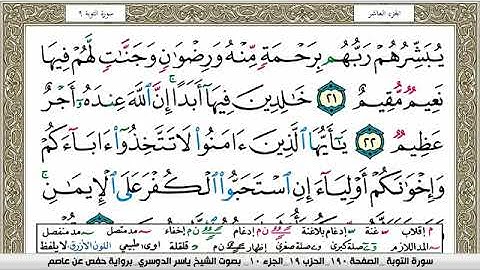 الجزء العاشر
سورة التوبة ٩
يُبَشِّرُهُمْ رَبُّهُم بِرَحْمَةٍ مِّنْهُ وَرِضْوَٰنٍ وَجَنَّٰتٍ لَّهُمْ فِيهَا
نَعِيمٌ مُّقِيمٌ ٢١ خَٰلِدِينَ فِيهَآ أَبَدًا ۚ إِنَّ ٱللَّهَ عِندَهُۥٓ أَجْرٌ
عَظِيمٌ ٢٢ يَٰٓأَيُّهَا ٱلَّذِينَ ءَامَنُوا۟ لَا تَتَّخِذُوٓا۟ ءَابَآءَكُمْ
وَإِخْوَٰنَكُمْ أَوْلِيَآءَ إِنِ ٱسْتَحَبُّوا۟ ٱلْكُفْرَ عَلَى ٱلْإِيمَٰنِ ۚ
م إقلاب غنة إدغام بلاغنة ن م إدغام إخفاء مد متصل مد منفصل
مد اللازم صلة كبرى وصلة صغرى إظهار ن م قلقلة اوى طبيعي اللون الأزرق لا يلفظ
سورة التوبة _ الصفحة ١٩٠ _ الحزب ١٩ _ الجزء ١٠ _ بصوت الشيخ ياسر الدوسري _ برواية حفص عن عاصم